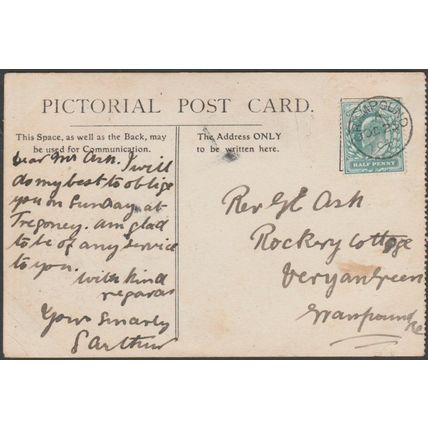 PICTORIAL POST CARD.
This Space, as well as the Back, may
be used for Communication.
The Address ONLY
to be written here.
HALF PENNY
Dear Mr Ash. I will
do my best to oblige
you on Sunday at
Tregoney. am glad
to be of any service
to you.
with kind
regards
Yours Sincerely
S Arthur
Rev G E Ash
Rockery Cottage
Veryan Green
Grampound